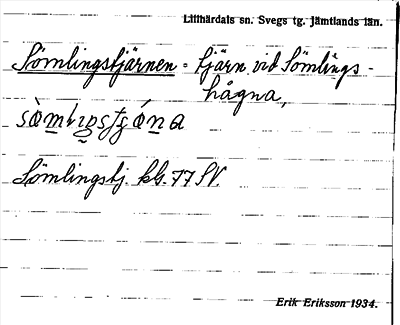 Lillhärdals sn. Svegs tg. Jämtlands län.
Sömlingstjärnen = tjärn vid Sömlings-
hågna,
Sömlingstj. kbl. 77 SV.
Erik Eriksson 1934.